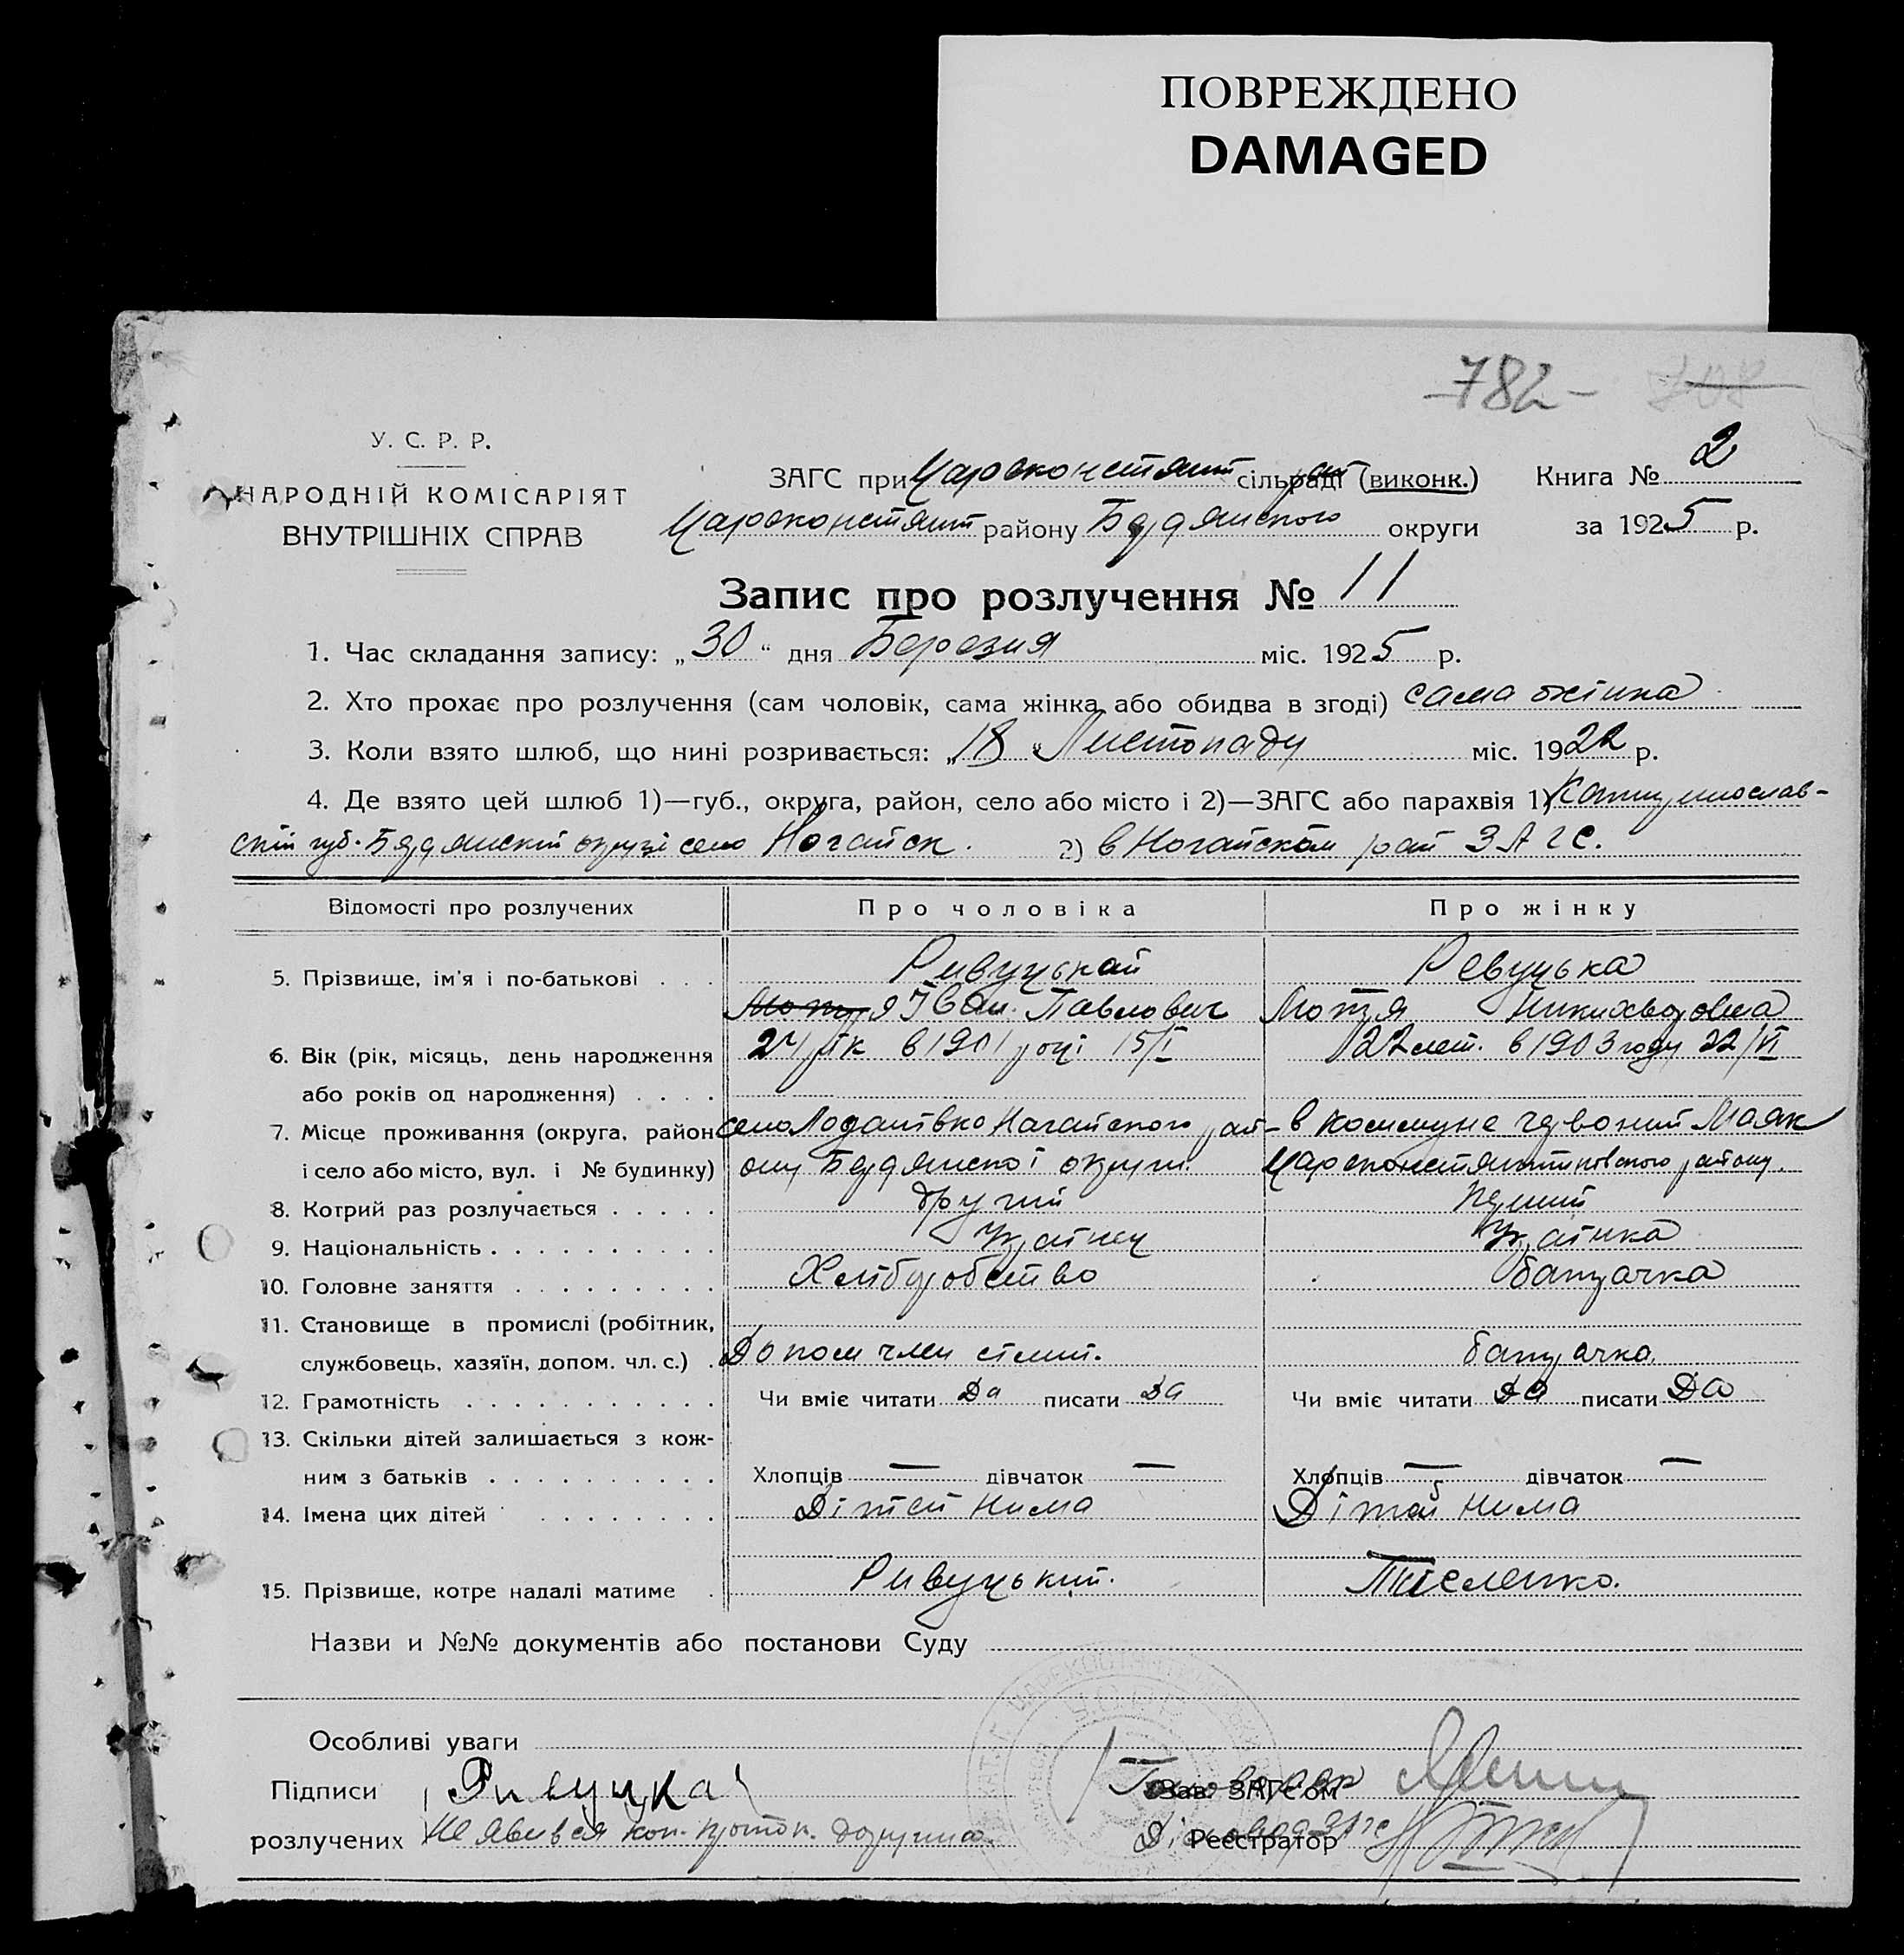 ПОВРЕЖДЕНО
DAMAGED
782-
У. С. Р. Р.
НАРОДНІЙ КОМІСАРІЯТ
ВНУТРІШНІХ СПРАВ
ЗАГС при Цароконстянт сільраді (виконк.) Книга № 2
Цароконстянт району Бердянського округи за 1925 р.
Запис про розлучення № 11
1. Час складання запису: „30“ дня Березня міс. 1925 р.
2. Хто прохає про розлучення (сам чоловік, сама жінка або обидва в згоді) сама жінка
3. Коли взято шлюб, що нині розривається: „18“ Листопаду міс. 1922 р.
4. Де взято цей шлюб 1)—губ., округа, район, село або місто і 2)—ЗАГС або парахвія 1)
губ. Бердянскій окрузі село Ногайск. 2) в Ногайском рай ЗАГС.
Відомості про розлучених Про чоловіка Про жінку
5. Прізвище, ім'я і по-батькові . . . Ривуцькай Ревуцька
Іван Павлович Мотя Никихворовна
6. Вік (рік, місяць, день народження 24 рік в 1901 році 15/I 22 лет. в 1903 году 22/VI
або років од народження) . . . .
7. Місце проживання (округа, район село Нагайского рай- в коммуне червоний Маяк
і село або місто, вул. і № будинку) ону Бердянскої округи. Царсконстянтиновского району.
8. Котрий раз розлучається . . . . . другий перший
9. Національність . . . . . . . . . . Украінец Украінка
10. Головне заняття . . . . . . . . . Хлібуробство батрачка
11. Становище в промислі (робітник,
службовець, хазяїн, допом. чл. с.) . Допом член сімї. батрачка.
12. Грамотність . . . . . . . . . . . Чи вміє читати Да писати Да Чи вміє читати Да писати Да
13. Скільки дітей залишається з кож-
ним з батьків . . . . . . . . . . Хлопців — дівчаток — Хлопців — дівчаток —
14. Імена цих дітей . . . . . . . . Дітей нима Дітей нима
15. Прізвище, котре надалі матиме . Ривуцький.
Назви и №№ документів або постанови Суду
Особливі уваги
Підписи Ривуцка Зав. ЗАГС'ом
розлучених Не явився Реєстратор